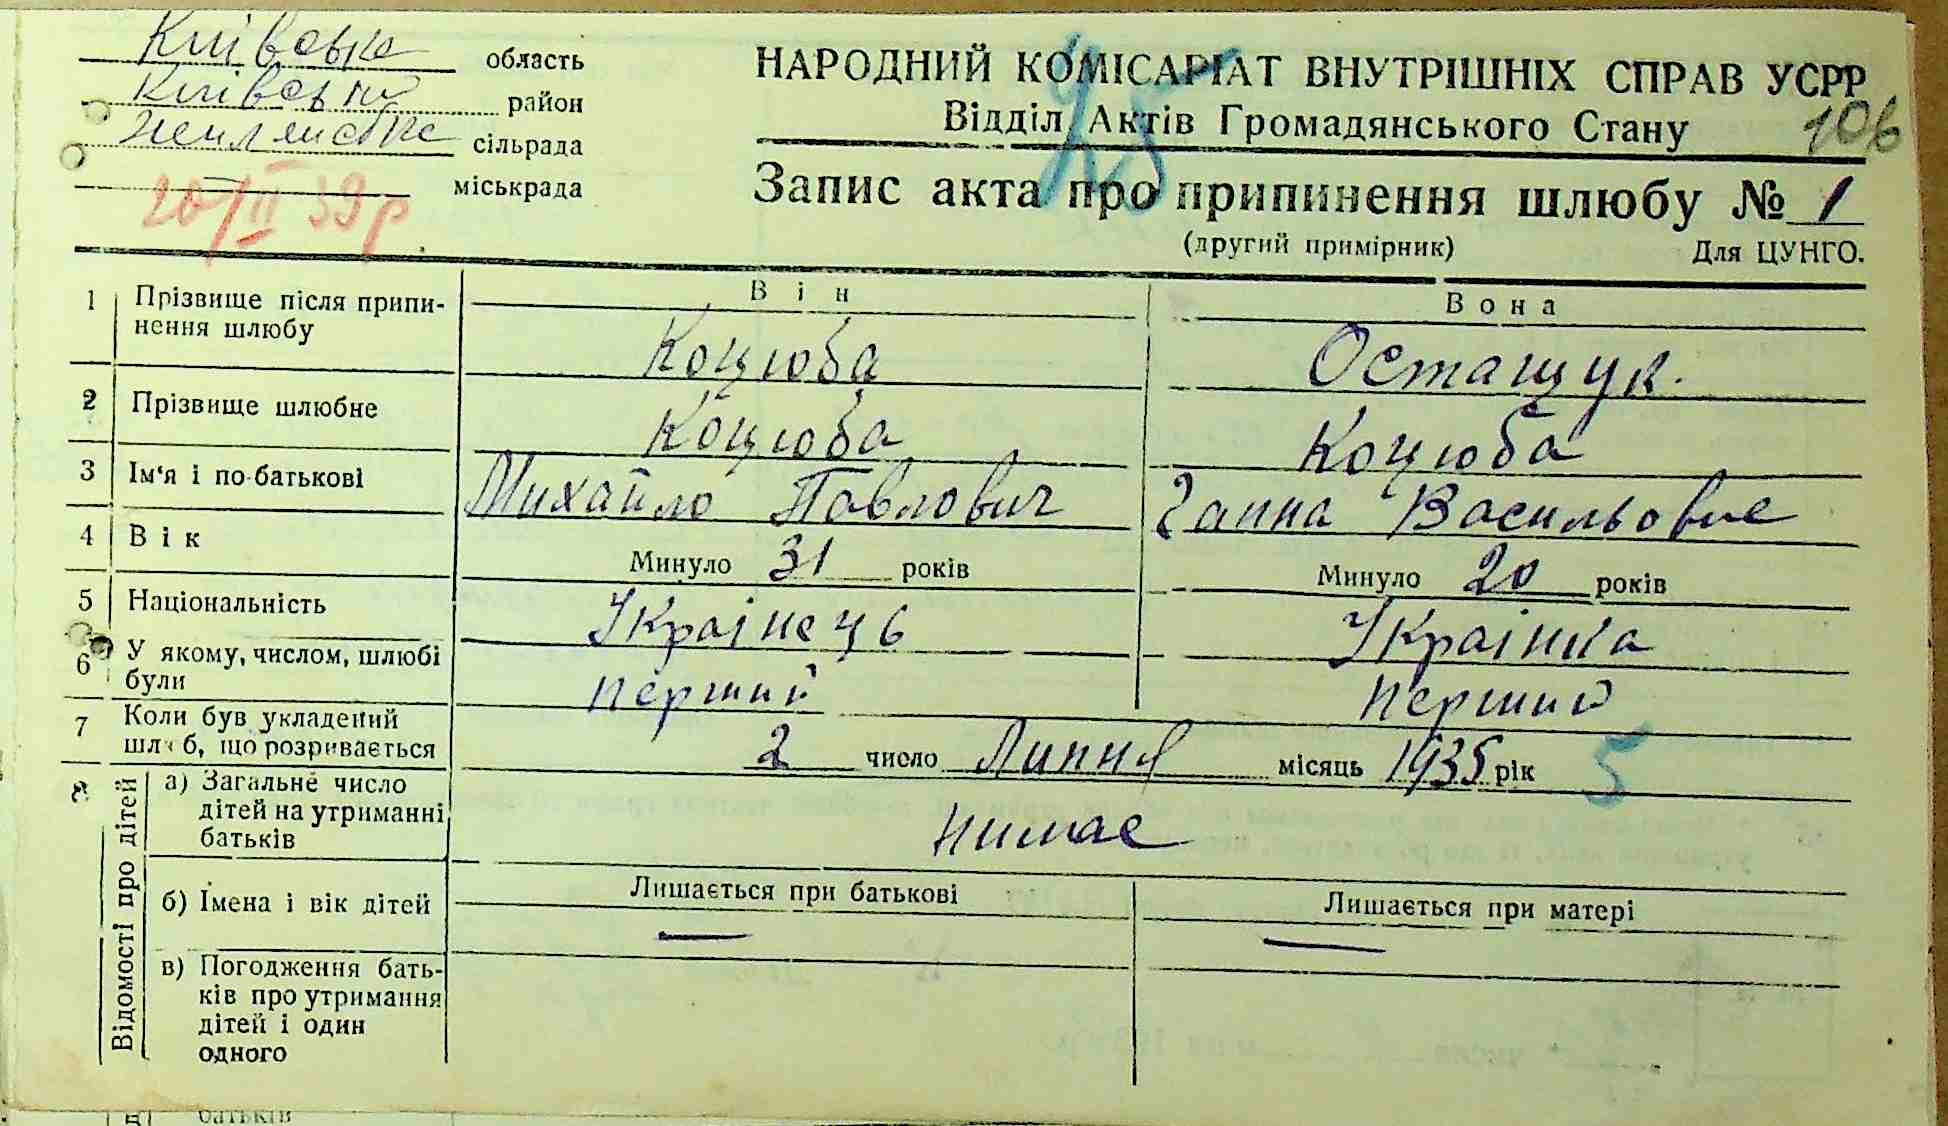 Київська область
Київський район
Жилянська сільрада
міськрада
20/II 39р
НАРОДНИЙ КОМІСАРІАТ ВНУТРІШНІХ СПРАВ УСРР
Відділ Актів Громадянського Стану
106
Запис акта про припинення шлюбу № 1
(другий примірник) Для ЦУНГО.
Він Вона
1 Прізвище після припи-
нення шлюбу
Коцюба Остащук.
2 Прізвище шлюбне Коцюба Коцюба
3 Ім'я і по-батькові Михайло Павлович Ганна Васильовне
4 Вік Минуло 31 років Минуло 20 років
5 Національність Українець Українка
6 У якому, числом, шлюбі
були
перший перший
7 Коли був укладений
шлюб, що розривається
2 число Липня місяць 1935 рік 5
8 Відомості про дітей
а) Загальне число
дітей на утриманні
батьків
нимає
б) Імена і вік дітей Лишається при батькові Лишається при матері
— —
в) Погодження бать-
ків про утримання
дітей і один
одного
батьків